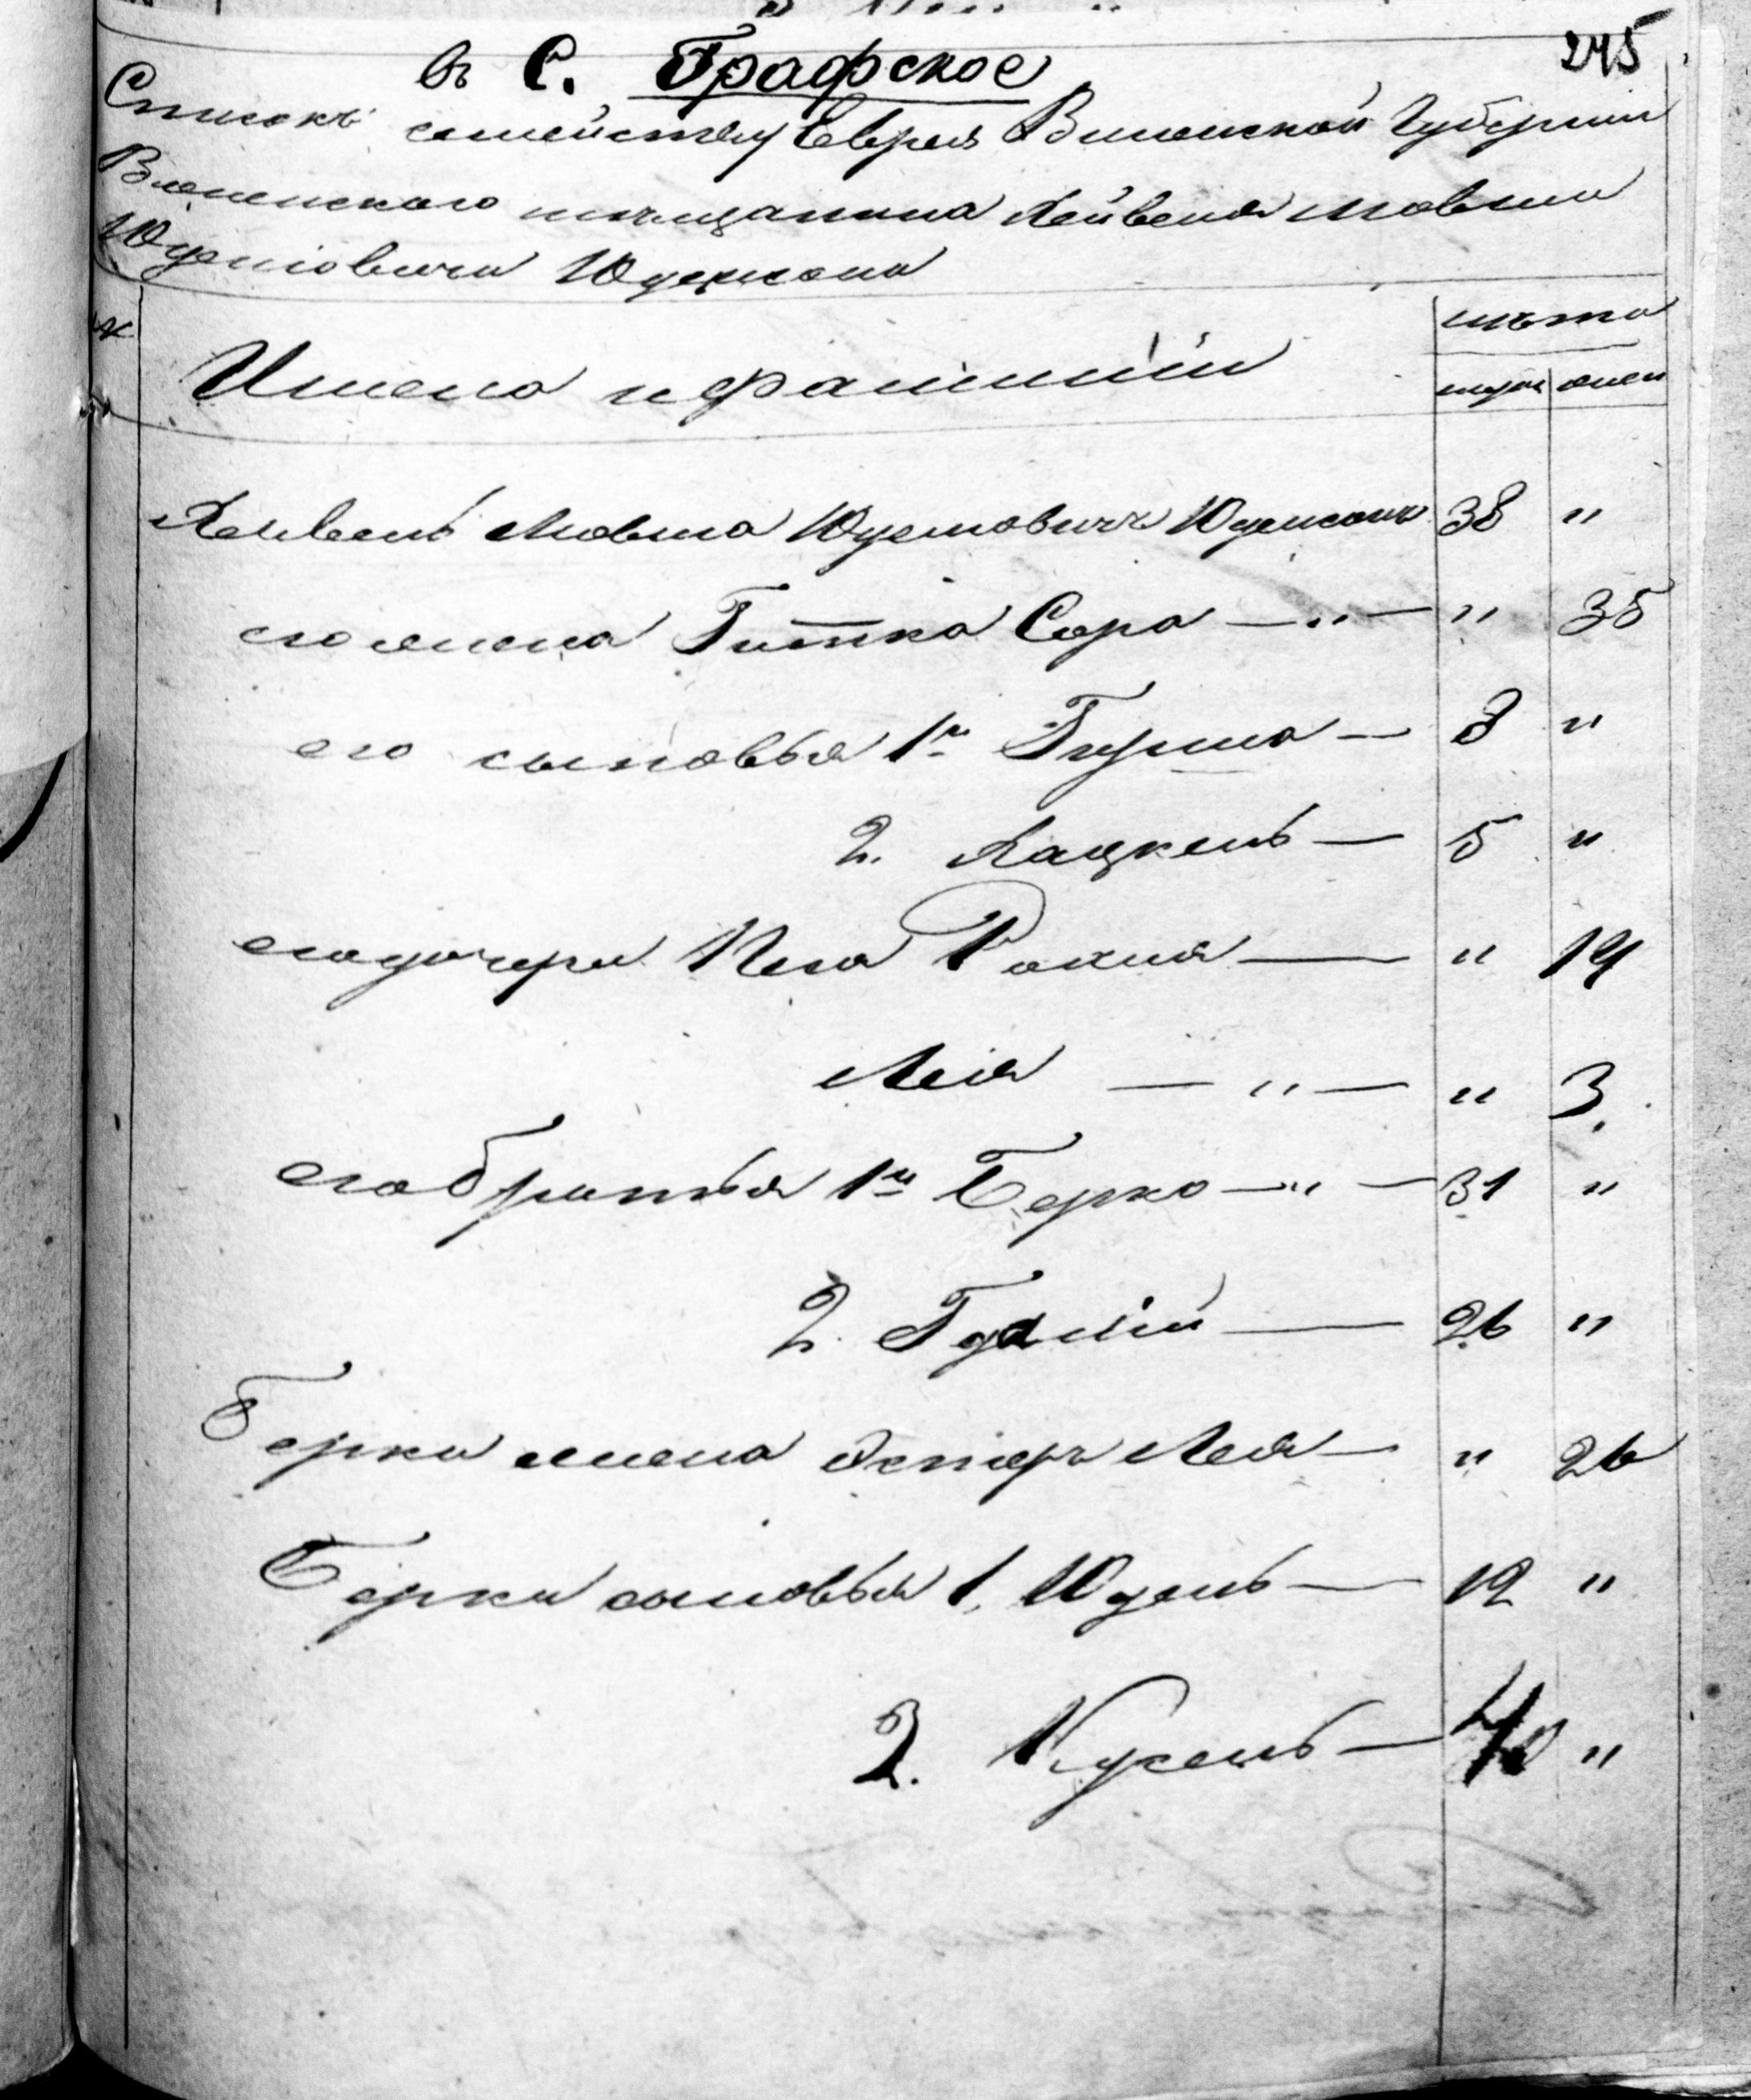 въ С. Графское 245
Списокъ семейству Еврея Виленской Губерніи
Виленскаго мѣщанина Лейвена Мовши
Юделіовича Юдельсона
№ Имена и фамиліи лѣта
муж жен
Лейвенъ Мовша Юделіовичъ Юдельсонъ 38 "
его жена Гитка Сора — " — " 35
его сыновья 1й Гирша — 8 "
2. Лацкель — 5 "
его дочери Неха Рохля — " 14
Лея — " — " 3.
его братья 1й Берко — " — 31 "
2. Гдалій — 26 "
Берки жена Эстеръ Лея — " 26
Берки сыновья 1. Юдель — 12 "
2. Кусель — "